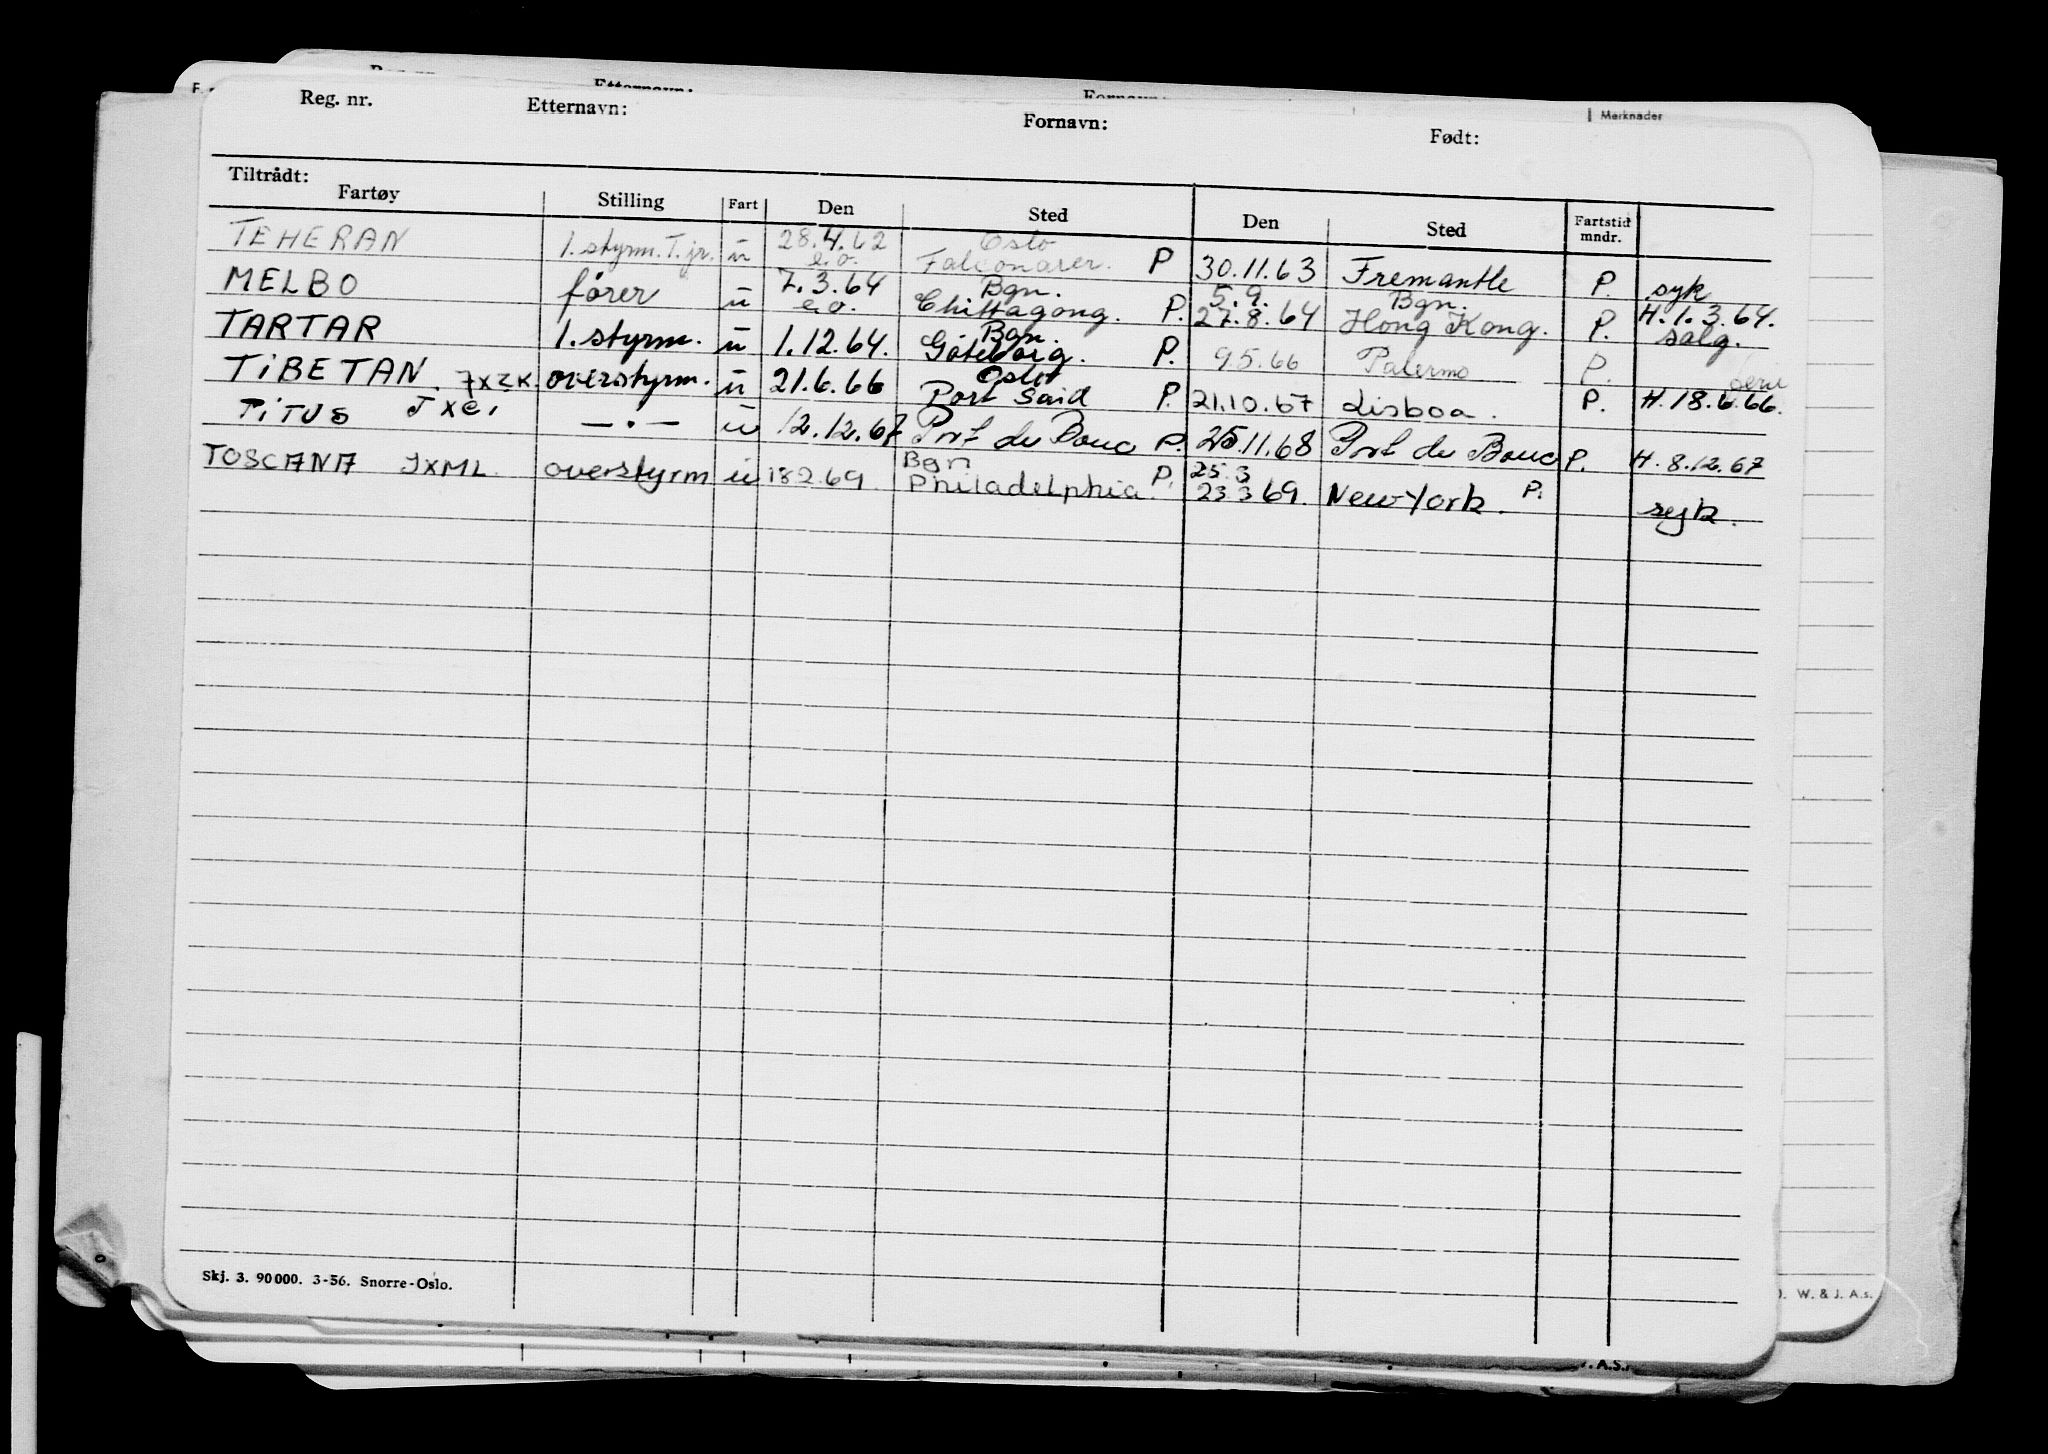 Reg. nr. Etternavn: Fornavn: Født: Merknader
Tiltrådt:
Fartøy Stilling Fart Den Sted Den Sted Fartstid mndr.
TEHERAN 1. styrm. T. jr. ü 28.4.62 e.o. Oslo Falconarer. P 30.11.63 Fremantle P. syk
MELBO fører ü 7.3.64 e.o. Bgn. Chittagong. P. 5.9. 27.8.64 Bgn. Hong Kong. P. H. 1.3.64. salg.
TARTAR 1. styrm. ü 1.12.64. Bgn. Göteborg. P. 9.5.66 Palermo P. ferie
TIBETAN. JXZK. overstyrm. ü 21.6.66 Oslo Port Said P. 21.10.67 Lisboa. P. H. 18.6.66.
TITUS JXCI — . — ü 12.12.67 Port de Bouc P. 25.11.68 Port de Bouc P. H. 8.12.67
TOSCANA JXML. overstyrm ü 18.2.69. Bgn Philadelphia. P. 25.3 23.3 69. New York. P. syk.
Skj. 3. 90 000. 3-56. Snorre-Oslo.
W. & J. A.s.